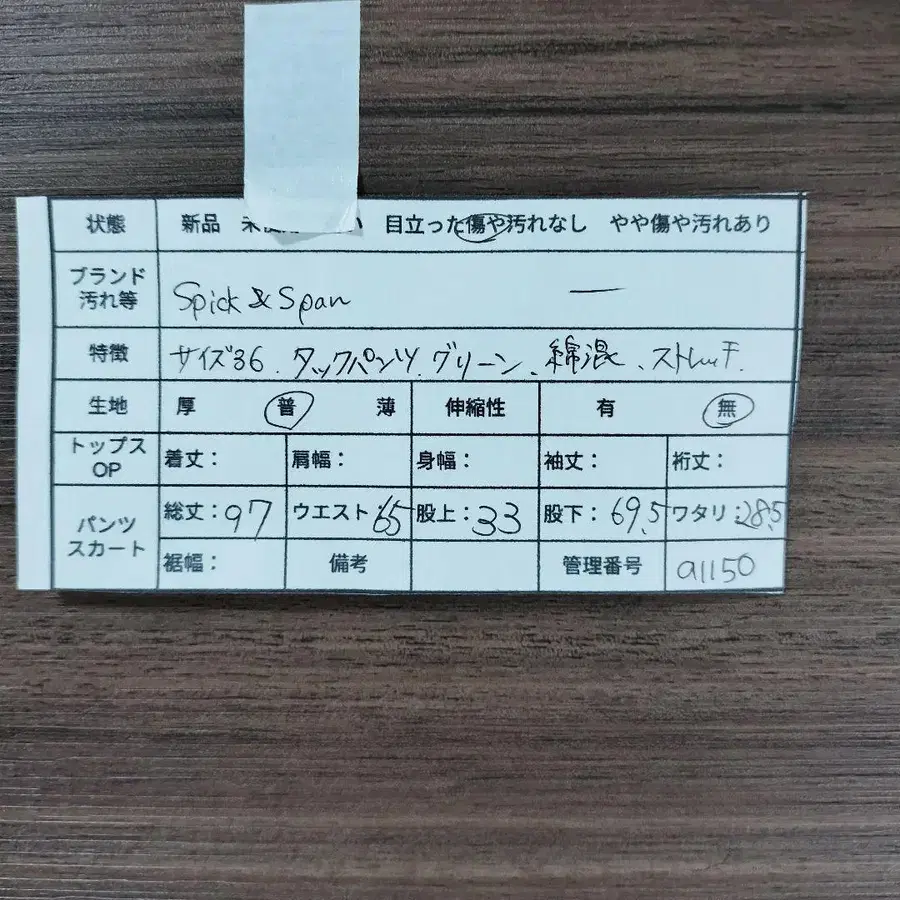 状態 新品 目立った傷や汚れなし やや傷や汚れあり
ブランド 汚れ等 Spick & Span ー
特徴 サイズ36、タックパンツ、グリーン、綿混、ストレッチ
生地 厚 普 薄 伸縮性 有 無
トップス OP 着丈: 肩幅: 身幅: 袖丈: 裄丈:
パンツ スカート 総丈:97 ウエスト:65 股上:33 股下:69.5 ワタリ:28.5
裾幅: 備考 管理番号 a1150